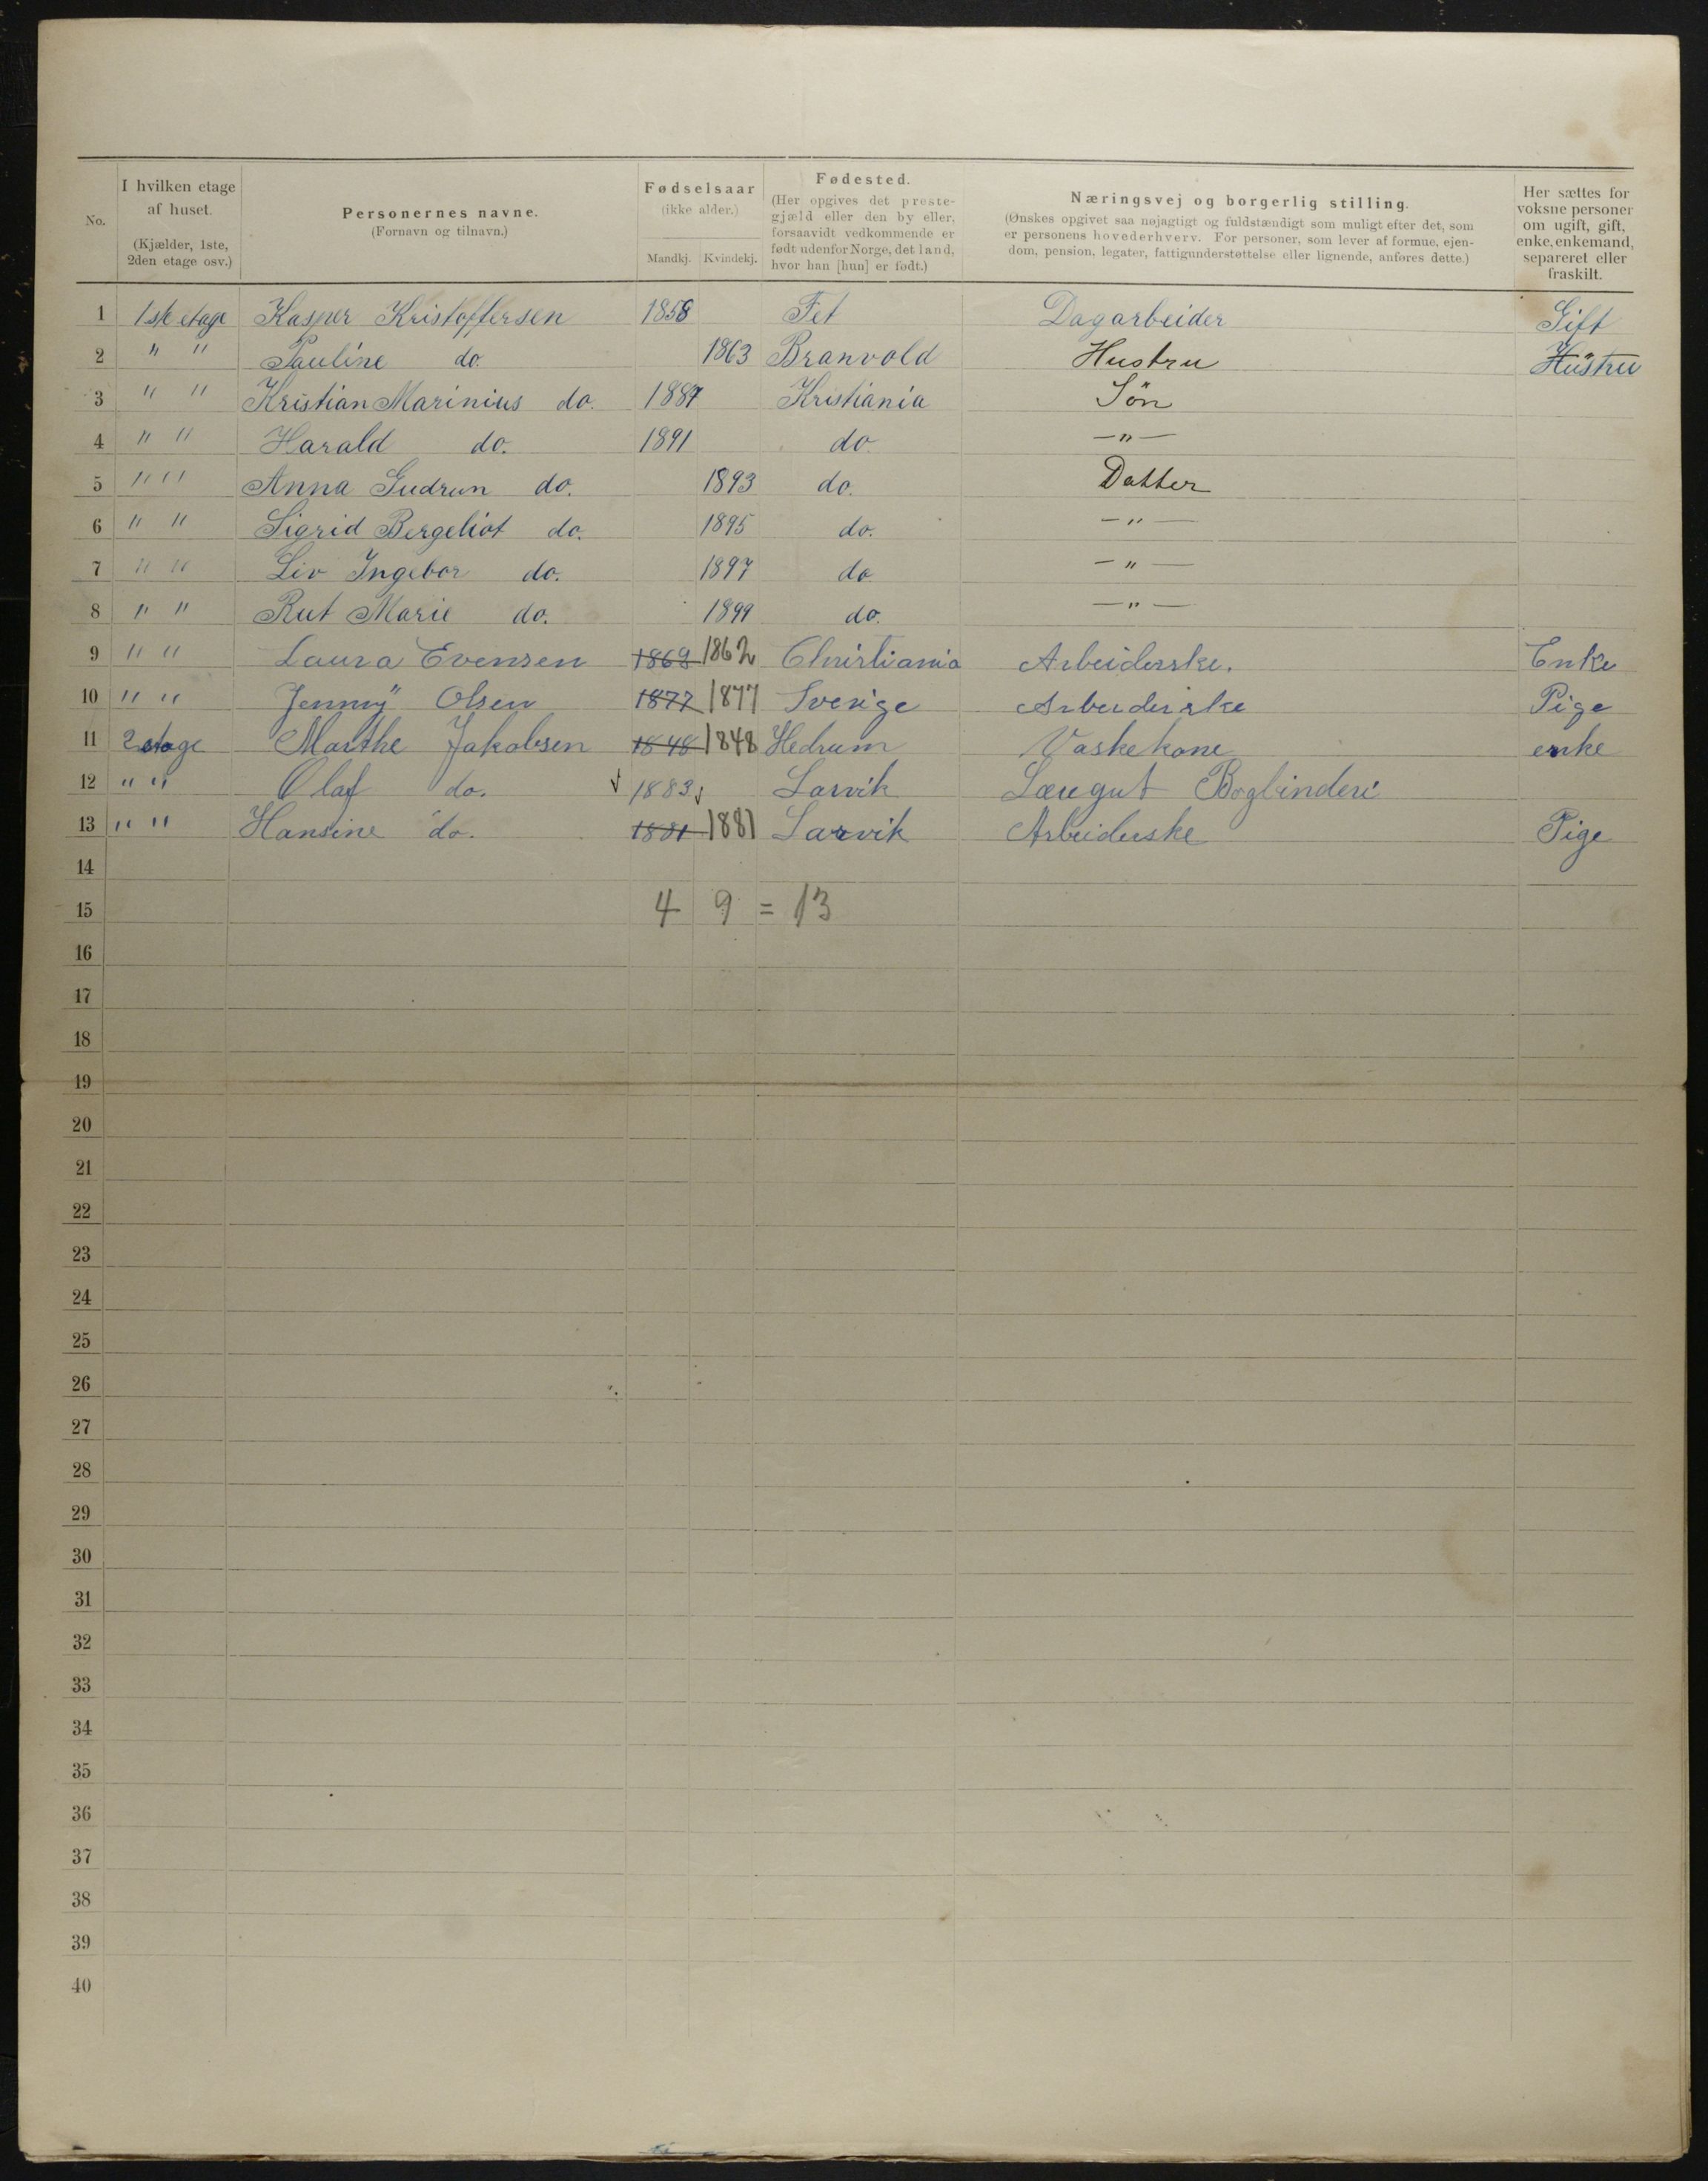 No. I hvilken etage af huset. (Kjælder, 1ste, 2den etage osv.) Personernes navne. (Fornavn og tilnavn.) Fødselsaar (ikke alder.) Mandkj. Kvindekj. Fødested. (Her opgives det prestegjæld eller den by eller, forsaavidt vedkommende er født udenfor Norge, det land, hvor han [hun] er født.) Næringsvej og borgerlig stilling. (Ønskes opgivet saa nøjagtigt og fuldstændigt som muligt efter det, som er personens hovederhverv. For personer, som lever af formue, ejendom, pension, legater, fattigunderstøttelse eller lignende, anføres dette.) Her sættes for voksne personer om ugift, gift, enke, enkemand, separeret eller fraskilt.
1 1ste etage Kasper Kristoffersen 1858 Fet Dagarbeider Gift
2 " " Pauline do. 1863 Branvold Hustru Hustru
3 " " Kristian Marinius do. 1887 Kristiania Søn
4 " " Harald do. 1891 do —"—
5 " " Anna Gudrun do. 1893 do. Datter
6 " " Sigrid Bergeliot do. 1895 do. —"—
7 " " Liv Ingebor do. 1897 do. —"—
8 " " Rut Marie do. 1899 do. —"—
9 " " Laura Evensen 1862 1862 Christiania Arbeiderske. Enke
10 " " Jenny Olsen 1877 1877 Sverige Arbeiderske Pige
11 2 etage Marthe Jakobsen 1848 1848 Hedrum Vaskekone enke
12 " " Olaf do. 1883 Larvik Læregut Bogbinderi
13 " " Hansine do. 1881 1881 Larvik Arbeiderske Pige
14
15 4 9 = 13
16
17
18
19
20
21
22
23
24
25
26
27
28
29
30
31
32
33
34
35
36
37
38
39
40